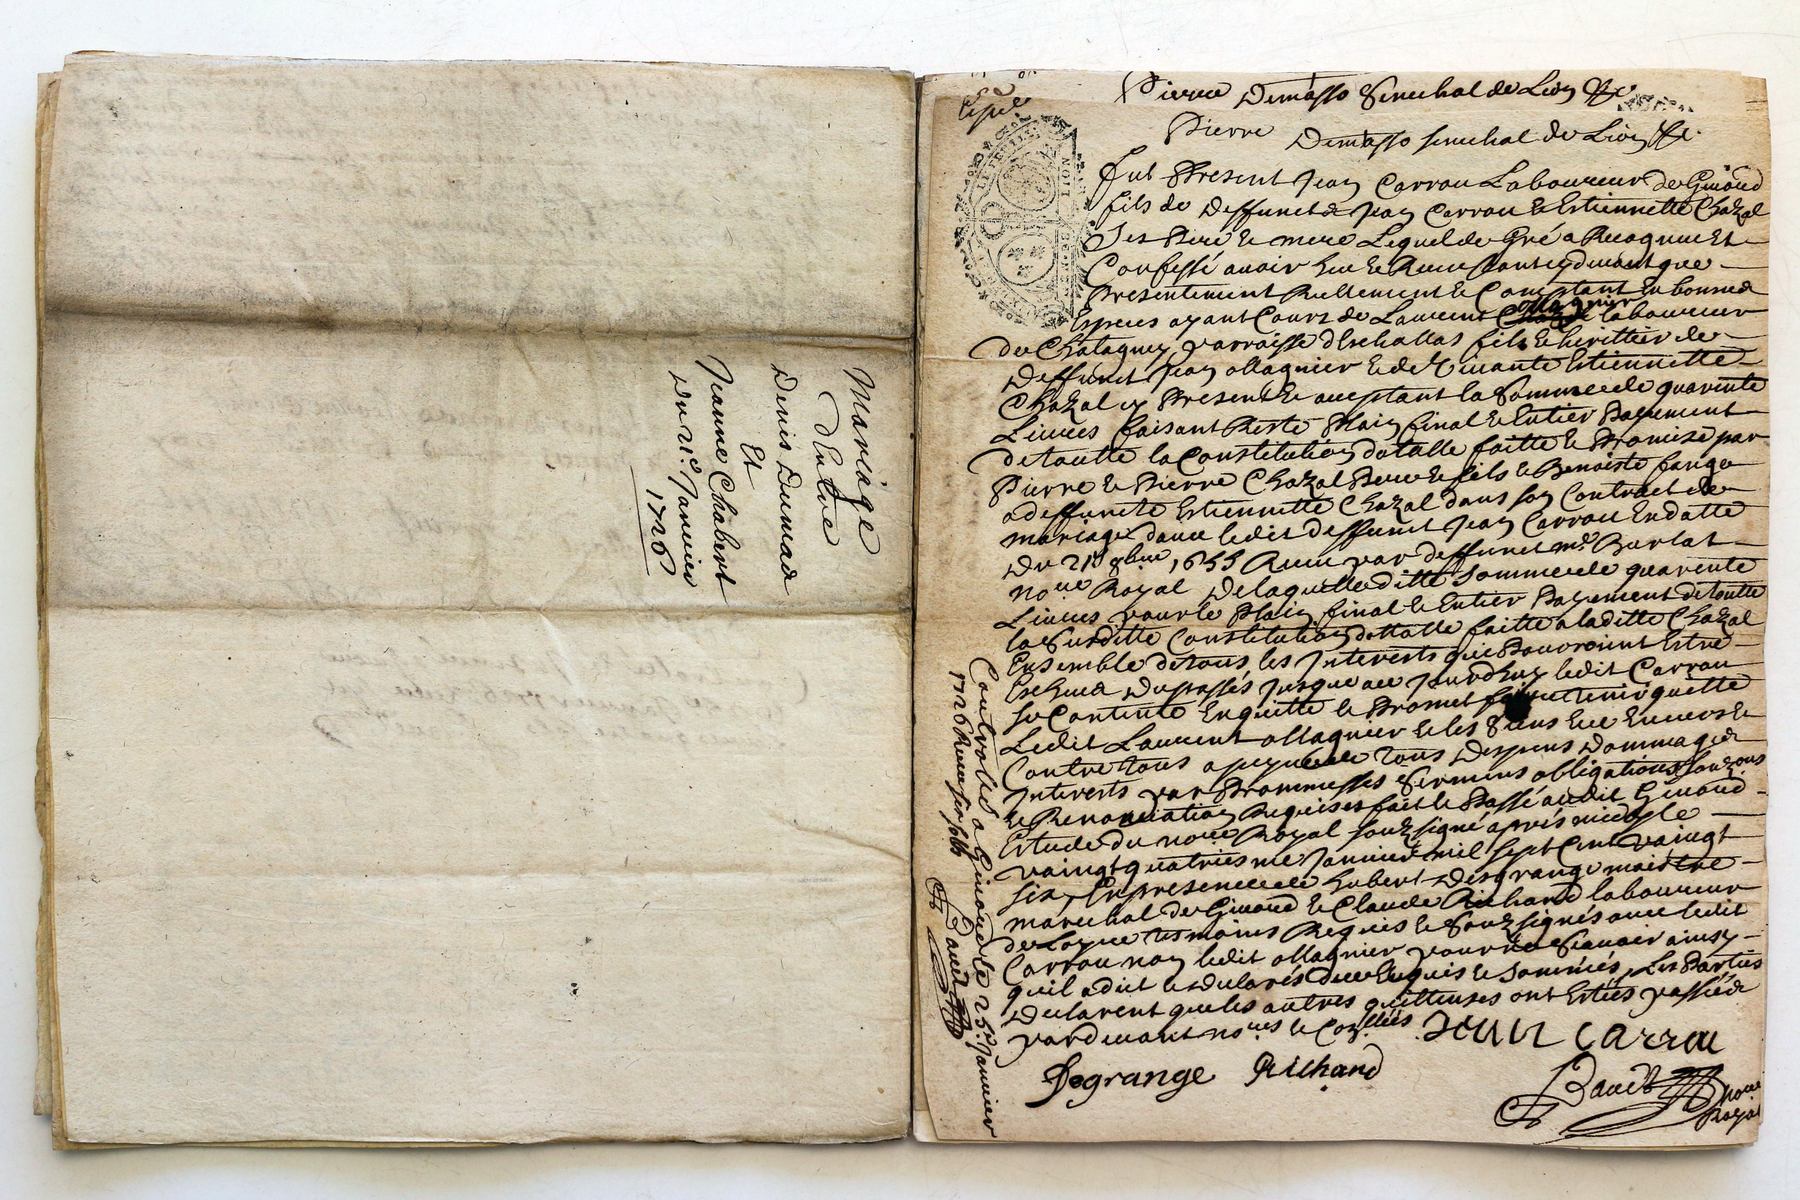 Mariage
d'Entre
Denis Dumas
Et
Jeanne Chabert
Du 21e. Janvier
1726
Pierre Demasso Senechal de Lion &c
Pierre Demasso senechal de Lion &c.
GENERALITE DE LION
Fut Present Jean Carrou Laboureur de Givord
fils de deffunct Jean Carrou & Estiennette Chazal
Ses Pere & mere Lequel de Gré a Recognu Et
Confessé avoir Eu & Receu
Presentement Reellement & Comptant En bonnes
Especes ayant Cours de Laurent ollagnier laboureur
de Chatagney parroisse d'Eschallas fils & herittier de
Deffunct Jean ollagnier & de vivante Estiennette
Chazal cy Present & acceptant la Somme de quarente
Livres faisant Reste Plain final & Entier Payement
de toutte la Constitution dotalle faitte & Promise par
Pierre & Pierre Chazal Pere & fils & Benoiste fange
a deffuncte Estiennette Chazal dans son Contract de
mariage avec ledit deffunct Jean Carrou En datte
Du 21 8bre 1655 Receu par deffunct me. Burlat
nore Royal De laquelle ditte Somme de quarente
Livres pour le Plain final & Entier Payement de toutte
la Susditte Constitution dottalle faitte a laditte Chazal
Ensemble de tous les Interests qui Pouvroient Estre
Escheus du passés jusques au jourd'huy ledit Carrou
se Contente En quitte & Promet faire tenir quitte
Ledit Laurent ollagnier & les Siens Eu Envers &
Contre tous a peyne de tous despens Dommages
Interests par Prommesses Sermens obligations
& Renonciation Requises fait & Passé audit Givord
Estude du nore Royal Soubsigné aprés midy le
vaingt quatriesme Janvier mil sept Cent vaingt
six, En presence de hubert desgrange maistre
marechal de Givord & Claude Richard laboureur
de Loyre tesmoins Requis & Soubsignés avec ledit
Carrou non ledit ollagnier pour ne Scavoir ainsy
quil a dict & declarés de ce Enquis & sommés, Les Parties
Declarent que les autres quittenses ont Estés passés
pardevant nores & Conllers
Jean Carrou
Degrange Richard
Baudt nore Royal
Controllé a Givord le 25e. Janvier
1726 Receu six sols
Baudt